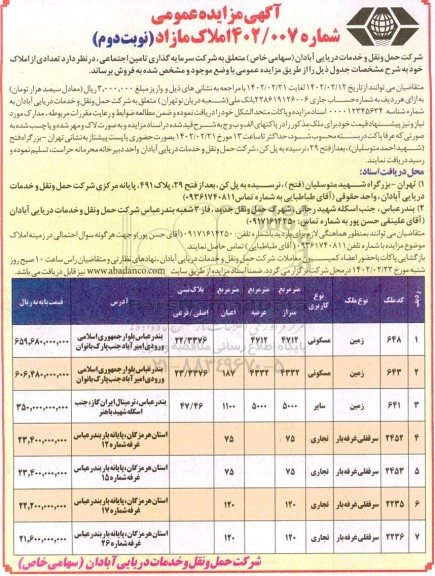 آگهی مزایده عمومی
شماره ۱۴۰۲/۰۰۷ املاک مازاد (نوبت دوم)
شرکت حمل ونقل و خدمات دریایی آبادان (سهامی خاص) متعلق به شرکت سرمایه گذاری تامین اجتماعی، در نظر دارد تعدادی از املاک
خود به شرح مشخصات جدول ذیل را از طریق مزایده عمومی با وضع موجود و مشخص شده به فروش برساند.
متقاضیان می توانند از تاریخ ۱۴۰۲/۰۲/۱۲ لغایت ۱۴۰۲/۰۲/۲۱ با مراجعه به نشانی های ذیل و واریز مبلغ ۳,۰۰۰,۰۰۰ ریال (معادل سیصد هزار تومان)
به ازای هر ردیف به شماره حساب جاری ۲۲۸۶۱۱۹۱۲۶۰۰۶ بانک ملی (شعبه دریان نو تهران) متعلق به شرکت حمل ونقل و خدمات دریایی آبادان به
شماره شناسه ۰۰۰۰۰۱۲۳۴۵۶۳۴ اسناد مزایده و پاکات متحدالشکل خود را دریافت نموده و ضمن مطالعه ضوابط و رعایت مقررات مربوطه، مدارک مورد
نیاز و نیز پیشنهاد قیمت خود برای ملک مذکور را در پاکتهای الف و ب و ج به شرح قید شده در اسناد مزایده و به صورت لاک و مهر شده و یا چسب شده به
صورتی که عرفا پاکت دربسته محسوب شود، حداکثر تا ساعت ۱۳ مورخ ۱۴۰۲/۰۲/۲۱ بصورت حضوری یا پست پیشتاز به نشانی تهران - بزرگراه فتح
(شهید احمد متوسلیان)، بعد از فتح ۲۹، نرسیده به پل کن، شرکت حمل ونقل و خدمات دریایی آبادان واحد دبیرخانه محرمانه حراست، تسلیم نموده و
رسید دریافت نمایند.
محل دریافت اسناد:
۱) تهران - بزرگراه شهید متوسلیان (فتح)، نرسیده به پل کن، بعد از فتح ۲۹، پلاک ۴۹۱، پایانه مرکزی شرکت حمل ونقل و خدمات
دریایی آبادان، واحد حقوقی (آقای طباطبایی به شماره تماس: ۰۹۳۶۱۷۴۰۸۱۱)
۲) بندرعباس، جنب اسکله شهید رجائی، شهرک حمل ونقل جدید، فاز ۳ شعبه بندرعباس شرکت حمل ونقل و خدمات دریایی آبادان
(آقای علینقی حسن پور به شماره تماس: ۰۹۱۷۱۶۱۴۲۵۰)
متقاضیان می توانند بمنظور هماهنگی لازم برای بازدید با شماره تلفن: ۰۹۱۷۱۶۱۴۲۵۰ (آقای حسن پور) و جهت هر گونه سوال احتمالی در زمینه املاک
موضوع مزایده با شماره تلفن ۰۹۳۶۱۷۴۰۸۱۱ (آقای طباطبایی) تماس حاصل نمایند.
بازگشایی پاکات با حضور اعضاء کمیسیون معاملات شرکت حمل ونقل و خدمات دریایی آبادان، نهادهای نظارتی و متقاضیان راس ساعت ۱۰ صبح روز
شنبه مورخ ۱۴۰۲/۰۲/۲۳ در محل شرکت برگزار می گردد. ضمنا اسناد مزایده از طریق سایت www.abadanco.com نیز قابل دریافت می باشد.
ردیف کد ملک نوع ملک نوع کاربری متر مربع متراژ متر مربع عرصه متر مربع اعیان پلاک ثبتی اصلی / فرعی آدرس قیمت پایه به ریال
۱ ۶۴۸ زمین مسکونی ۴۷۱۲ ۴۷۱۲ ۲۲/۳۳۷۶ بندرعباس بلوار جمهوری اسلامی ورودی امیرآباد جنب پارک بانوان ۶۵۹,۶۸۰,۰۰۰,۰۰۰
۲ ۶۴۳ زمین مسکونی ۴۳۳۲ ۴۳۳۲ ۱۸۷ ۲۲/۳۳۷۶ بندرعباس بلوار جمهوری اسلامی ورودی امیرآباد جنب پارک بانوان ۶۰۶,۴۸۰,۰۰۰,۰۰۰
۳ ۶۴۱ زمین سایر ۵۰۰۰ ۵۰۰۰ ۱۱۰۰ ۴۷/۴۶ بندرعباس، ترمینال ایران گاز، جنب اسکله شهید باهنر ۳۵۰,۰۰۰,۰۰۰,۰۰۰
۴ ۲۴۵۲ سرقفلی غرفه بار تجاری ۷۵ ۷۵ استان هرمزگان، پایانه بار بندرعباس غرفه شماره ۱۲ ۲۳,۴۰۰,۰۰۰,۰۰۰
۵ ۲۴۵۳ سرقفلی غرفه بار تجاری ۷۵ ۷۵ استان هرمزگان، پایانه بار بندرعباس غرفه شماره ۱۵ ۲۳,۴۰۰,۰۰۰,۰۰۰
۶ ۲۲۳۵ سرقفلی غرفه بار تجاری ۱۲۰ ۱۲۰ استان هرمزگان، پایانه بار بندرعباس غرفه شماره ۱۷ ۲۲,۲۰۰,۰۰۰,۰۰۰
۷ ۲۲۳۶ سرقفلی غرفه بار تجاری ۱۲۰ ۱۲۰ استان هرمزگان، پایانه بار بندرعباس غرفه شماره ۲۶ ۲۱,۶۰۰,۰۰۰,۰۰۰
۰۲۱-۸۸۳۴۹۶۷۰-۵
شرکت حمل ونقل و خدمات دریایی آبادان (سهامی خاص)